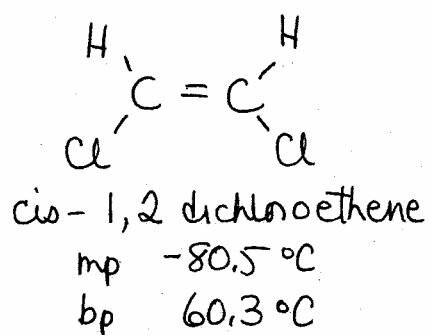 H H
C = C
Cl Cl
cis - 1,2 dichloroethene
mp -80.5 °C
bp 60.3 °C